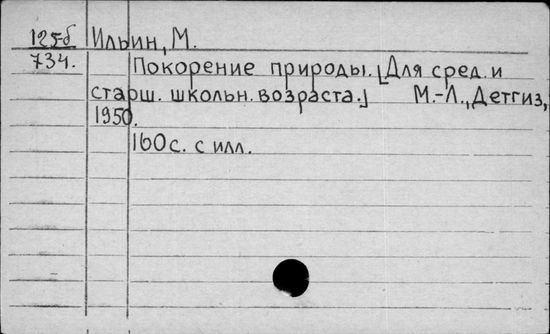 125-б Ильин, М.
734. Покорение природы. [Для сред. и
старш. школьн. возраста.] М.-Л., Детгиз,
1950.
160 с. с илл.